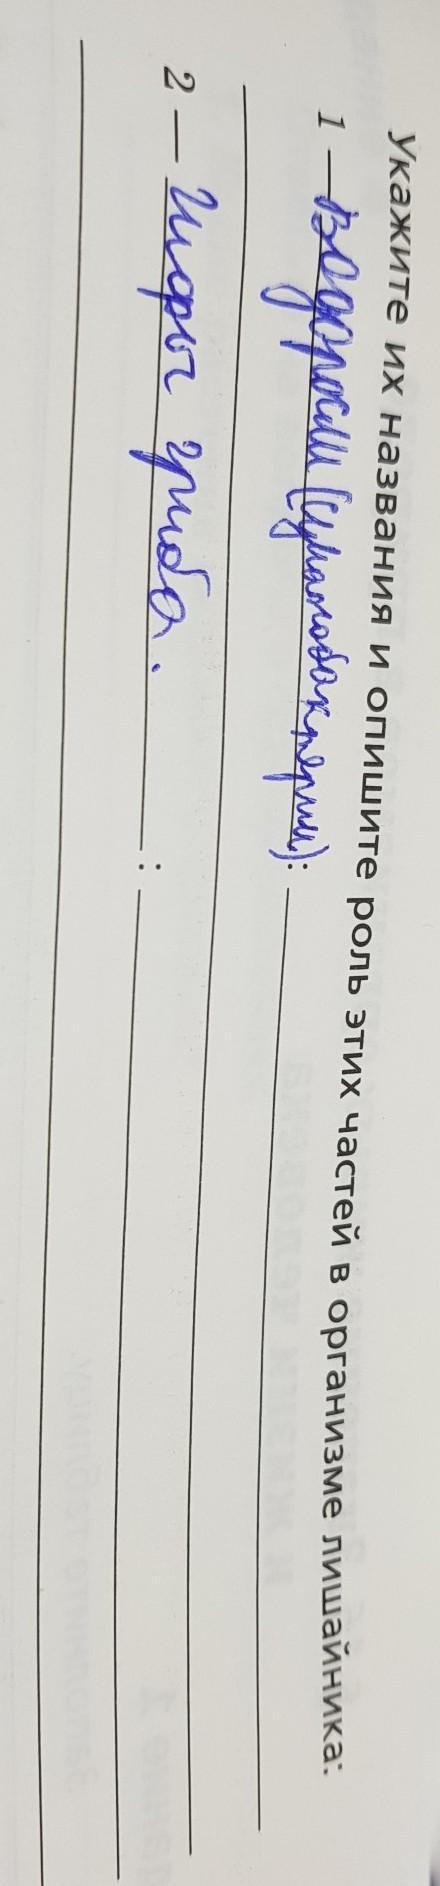 Укажите их названия и опишите роль этих частей в организме лишайника:
1 — Водоросли (цианобактерии):
2 — Гифы гриба. :